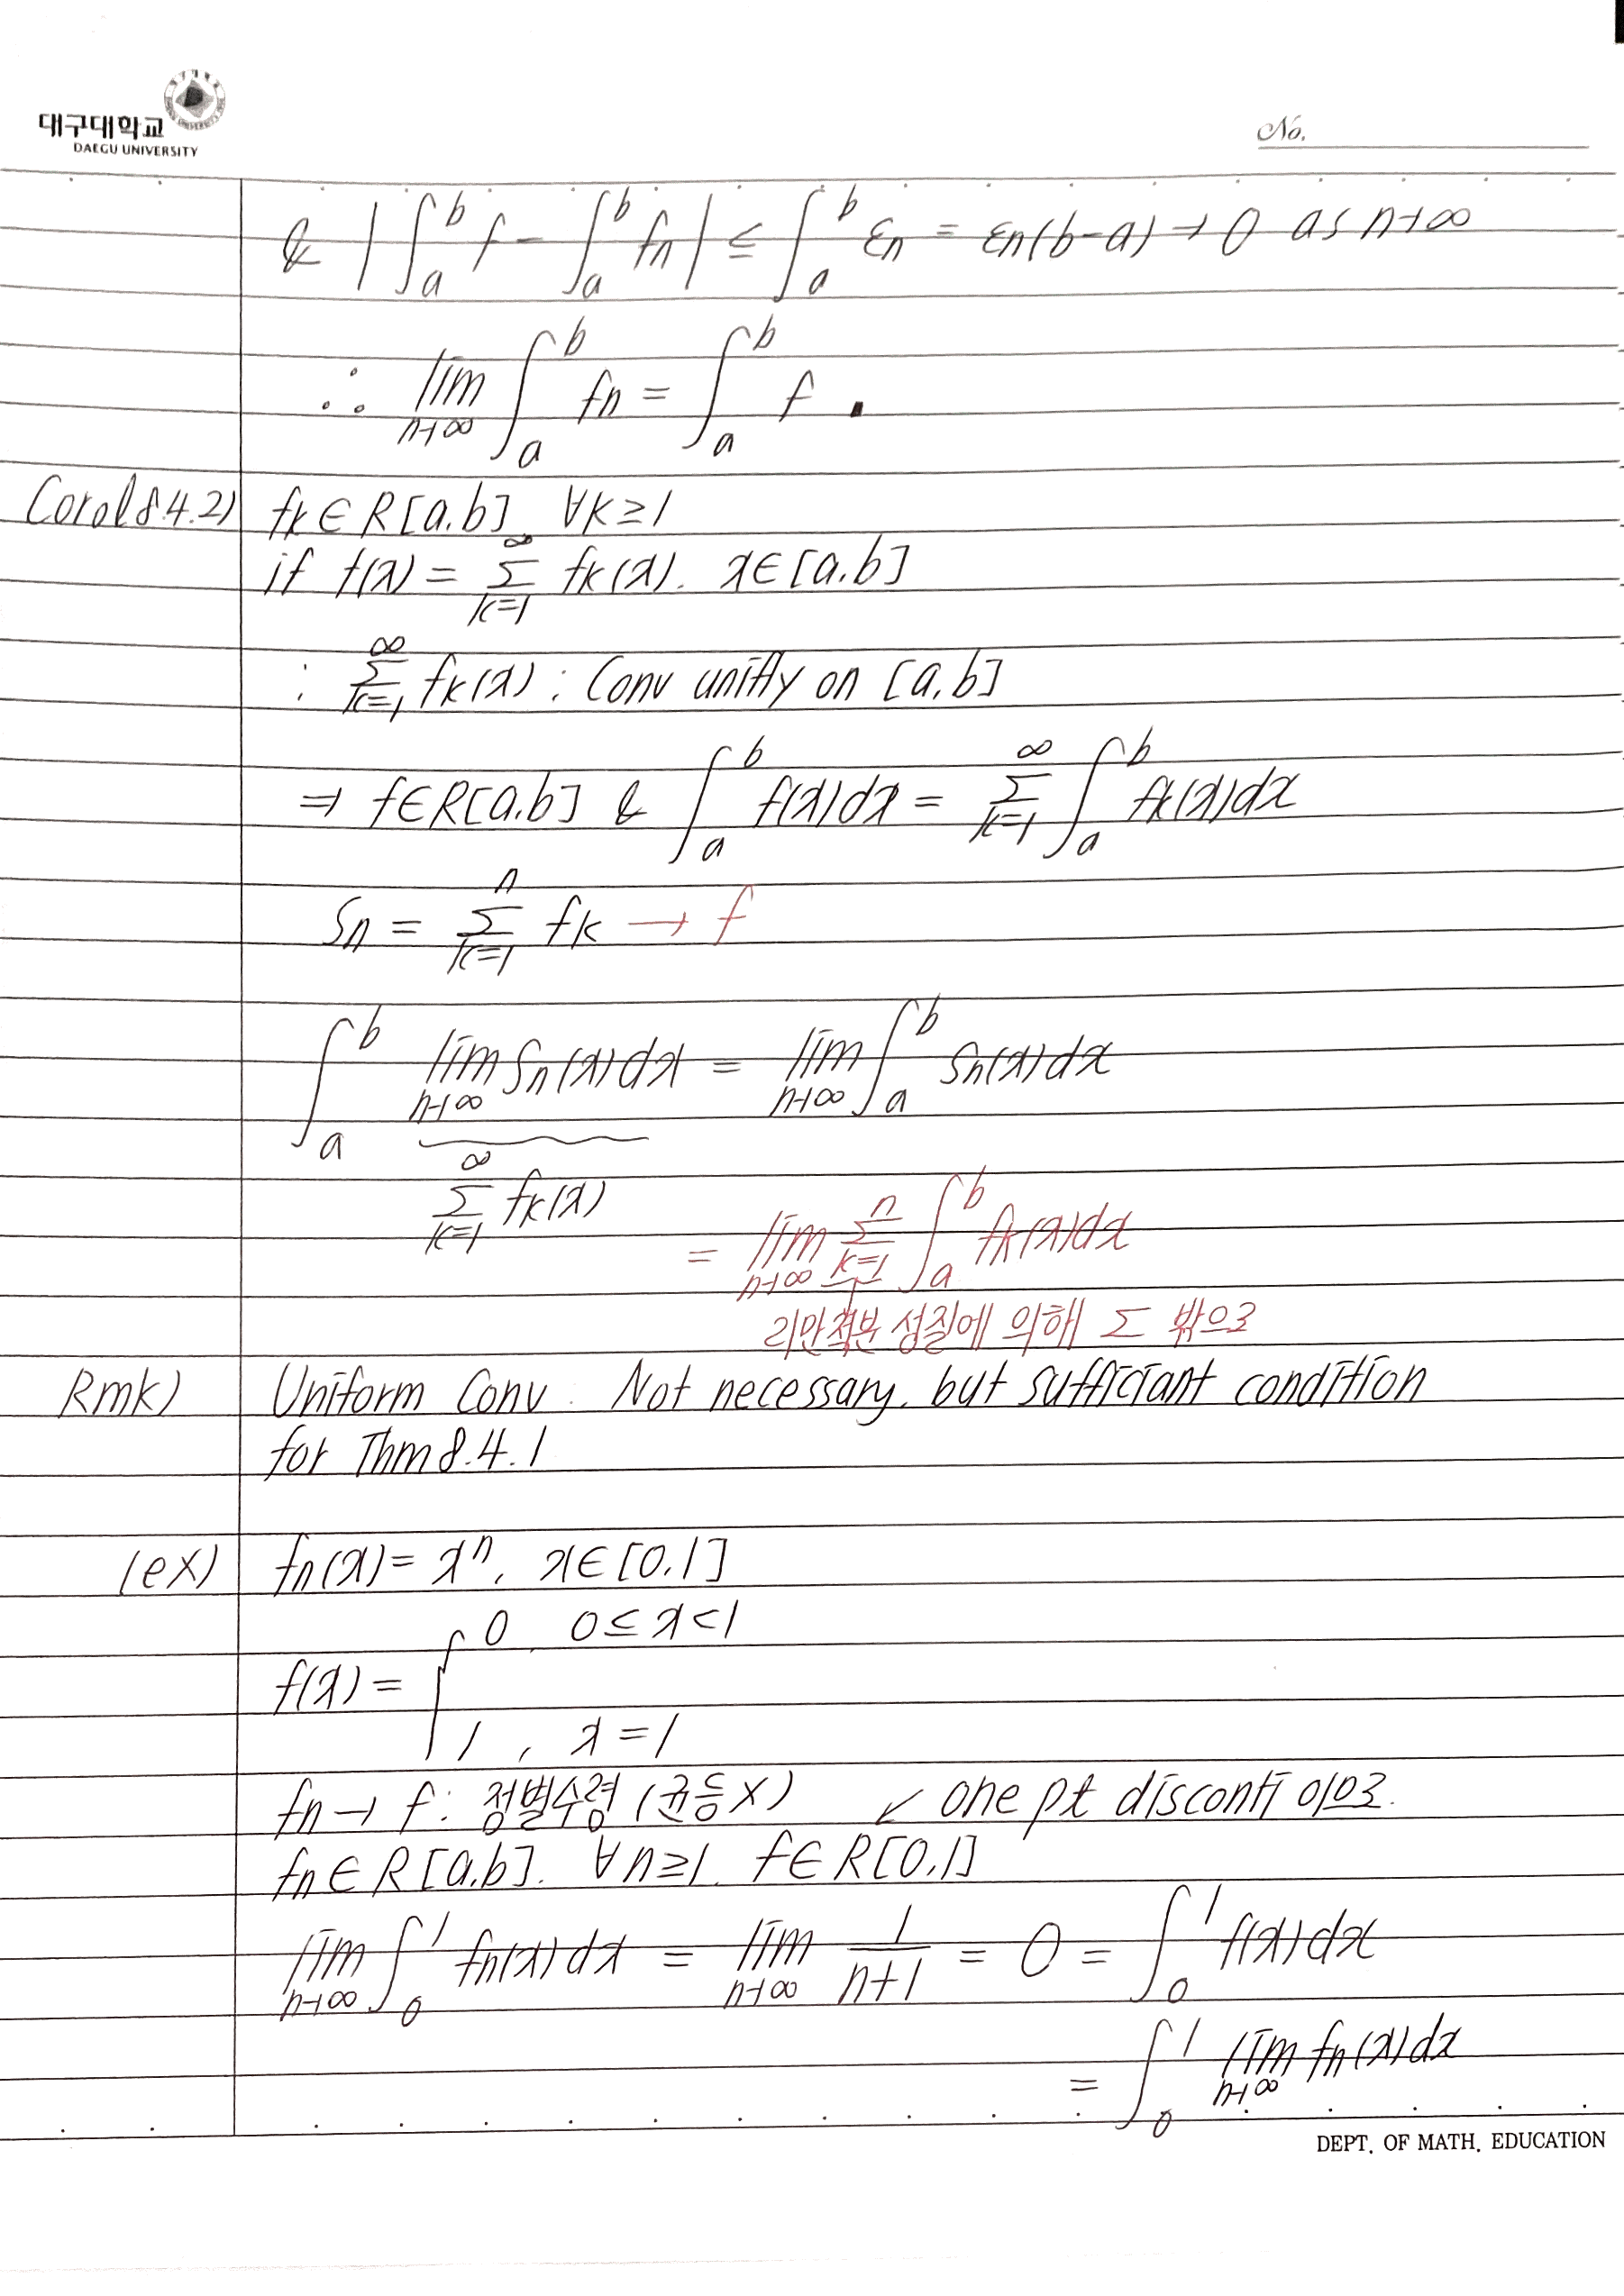 대구대학교
DAEGU UNIVERSITY
No.
& |∫_a^b f - ∫_a^b fn| ≤ ∫_a^b εn = εn(b-a) → 0 as n→∞
∴ lim_{n→∞} ∫_a^b fn = ∫_a^b f ▪
Corol 8.4.2) fk∈R[a,b] ∀k≥1
if f(x) = Σ_{k=1}^∞ fk(x). x∈[a,b]
: Σ_{k=1}^∞ fk(x) : Conv unifly on [a,b]
⇒ f∈R[a,b] & ∫_a^b f(x)dx = Σ_{k=1}^∞ ∫_a^b fk(x)dx
Sn = Σ_{k=1}^n fk → f
∫_a^b lim_{n→∞} Sn(x)dx = lim_{n→∞} ∫_a^b Sn(x)dx
Σ_{k=1}^∞ fk(x)
= lim_{n→∞} Σ_{k=1}^n ∫_a^b fk(x)dx
리만적분 성질에 의해 Σ 밖으로
Rmk) Uniform Conv. Not necessary, but sufficiant condition
for Thm 8.4.1
(ex) fn(x) = x^n, x∈[0,1]
f(x) = { 0, 0≤x<1
1, x=1
fn → f : 점별수렴 (균등X) ↙ one pt disconti 이므로.
fn∈R[a,b]. ∀n≥1. f∈R[0,1]
lim_{n→∞} ∫_0^1 fn(x)dx = lim_{n→∞} 1/(n+1) = 0 = ∫_0^1 f(x)dx
= ∫_0^1 lim_{n→∞} fn(x)dx
DEPT. OF MATH. EDUCATION